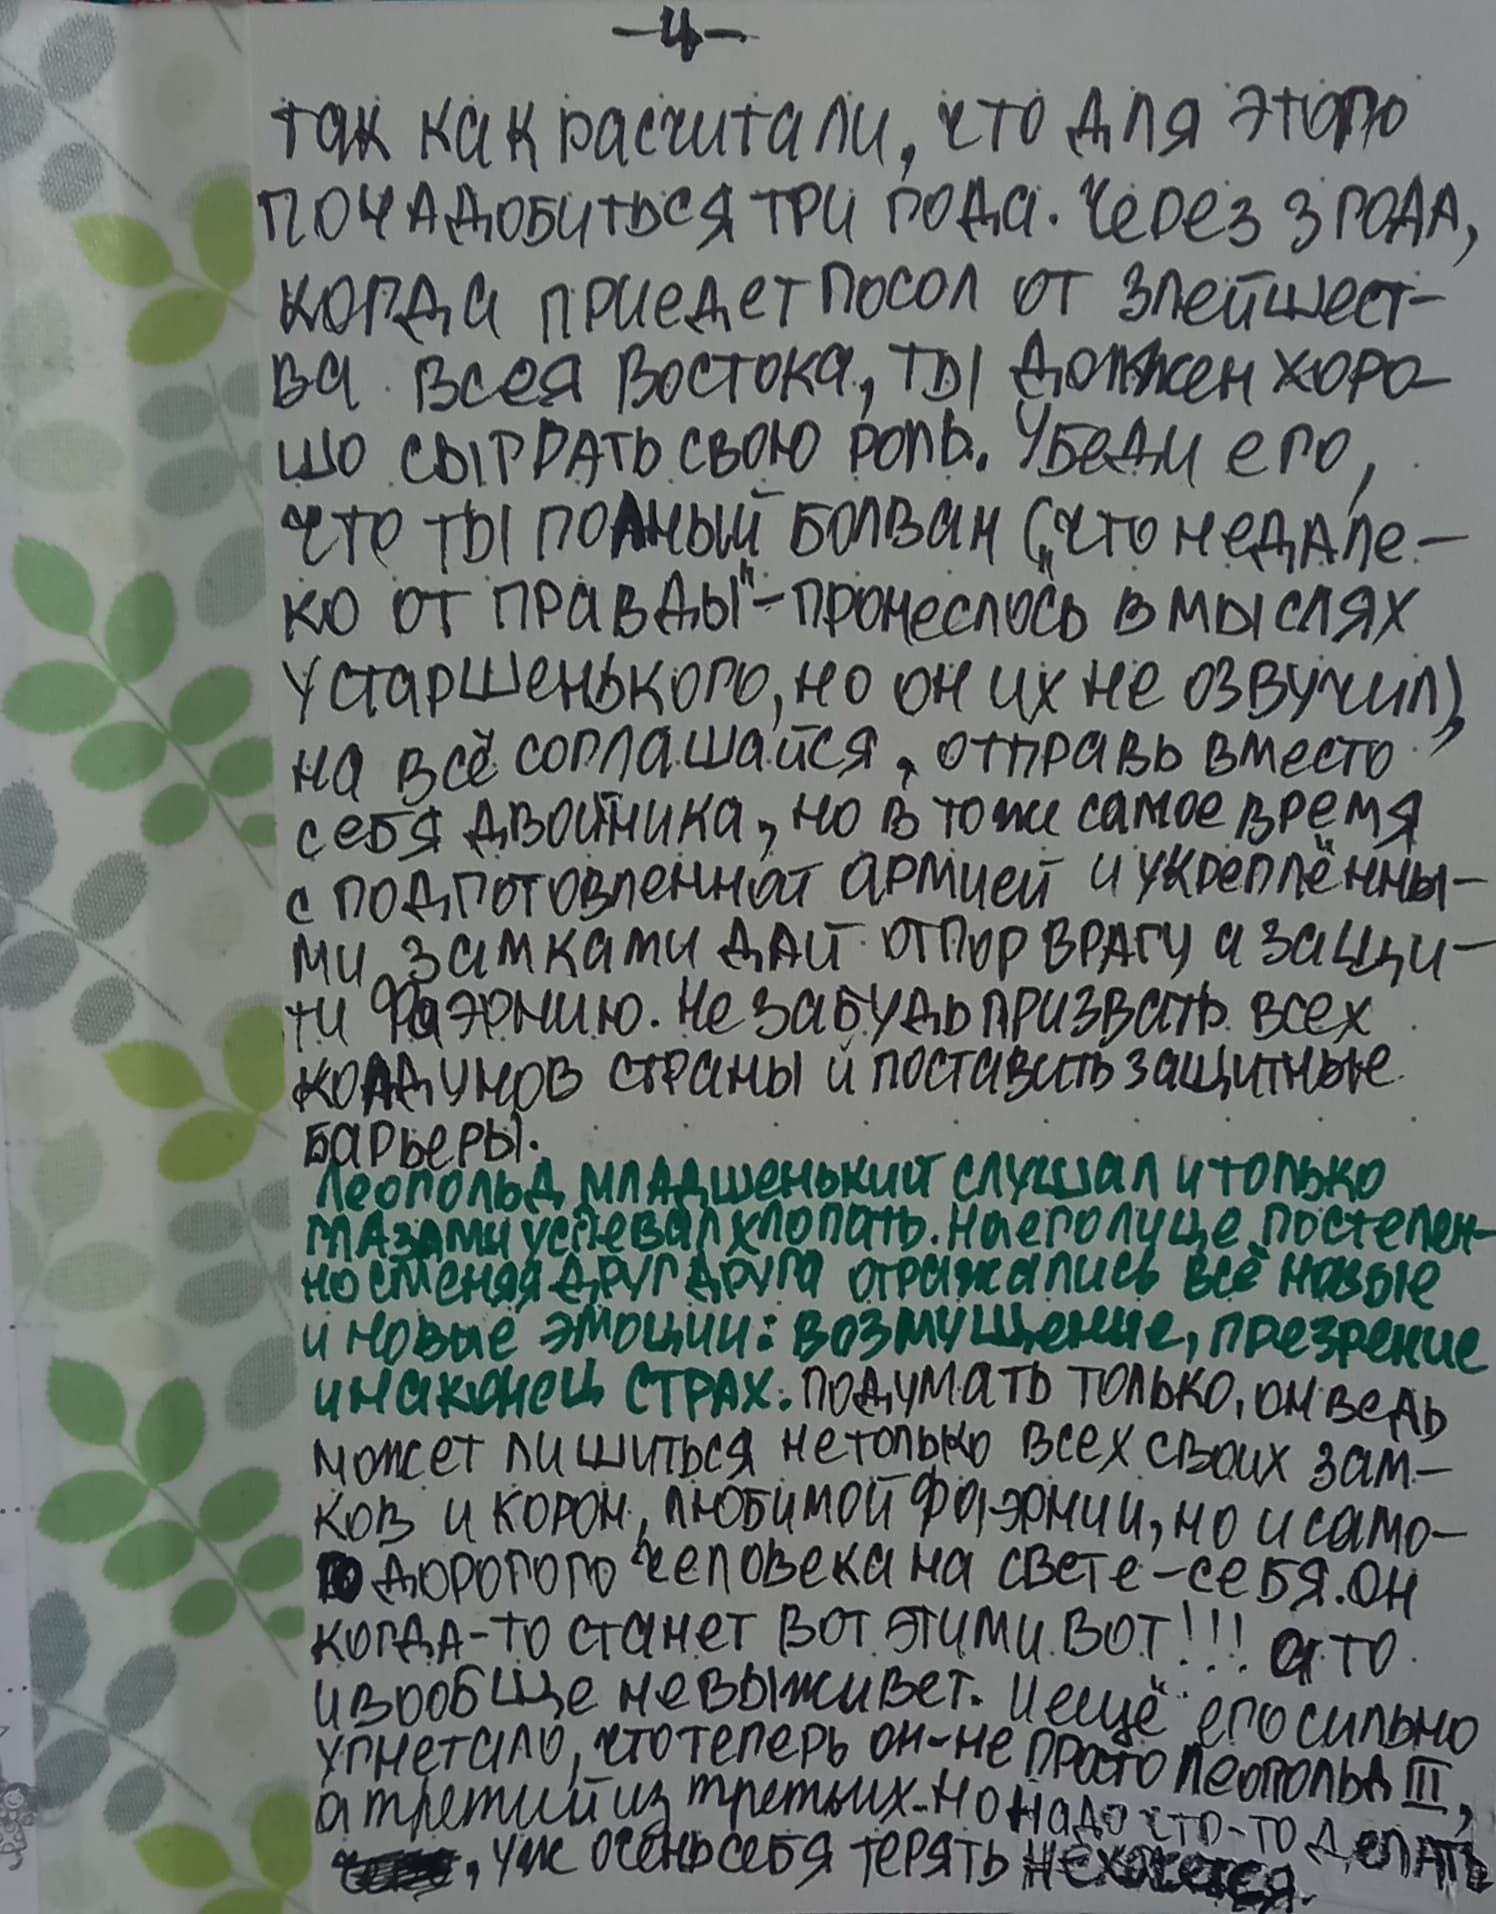 -4-
так как расчитали, что для этого
понадобиться три года. Через 3 года,
когда приедет посол от Злейшест-
ва всея Востока, ты должен хоро-
шо сыграть свою роль. Убеди его,
что ты полный болван („что недале-
ко от правды"- пронеслось в мыслях
у старшенького, но он их не озвучил),
на всё соглашайся, отправь вместо
себя двойника, но в тоже самое время
с подготовленной армией и укреплённы-
ми замками дай отпор врагу а защи-
ти Фаэрнию. Не забудь призвать всех
колдунов страны и поставить защитные
барьеры.
Леопольд младшенький слушал и только
глазами успевал хлопать. На его лице постепен-
но сменяя друг друга отражались всё новые
и новые эмоции: возмущение, презрение
и наконец страх. Подумать только, он ведь
может лишиться не только всех своих зам-
ков и корон, любимой Фаэрнии, но и само-
го дорогого человека на свете - себя. Он
когда-то станет вот этими вот!!! а то
и вообще не выживет. И ещё его сильно
угнетало, что теперь он - не просто Леопольд III,
а третий из третьих. Но надо что-то делать
, уж очень себя терять не хочется.